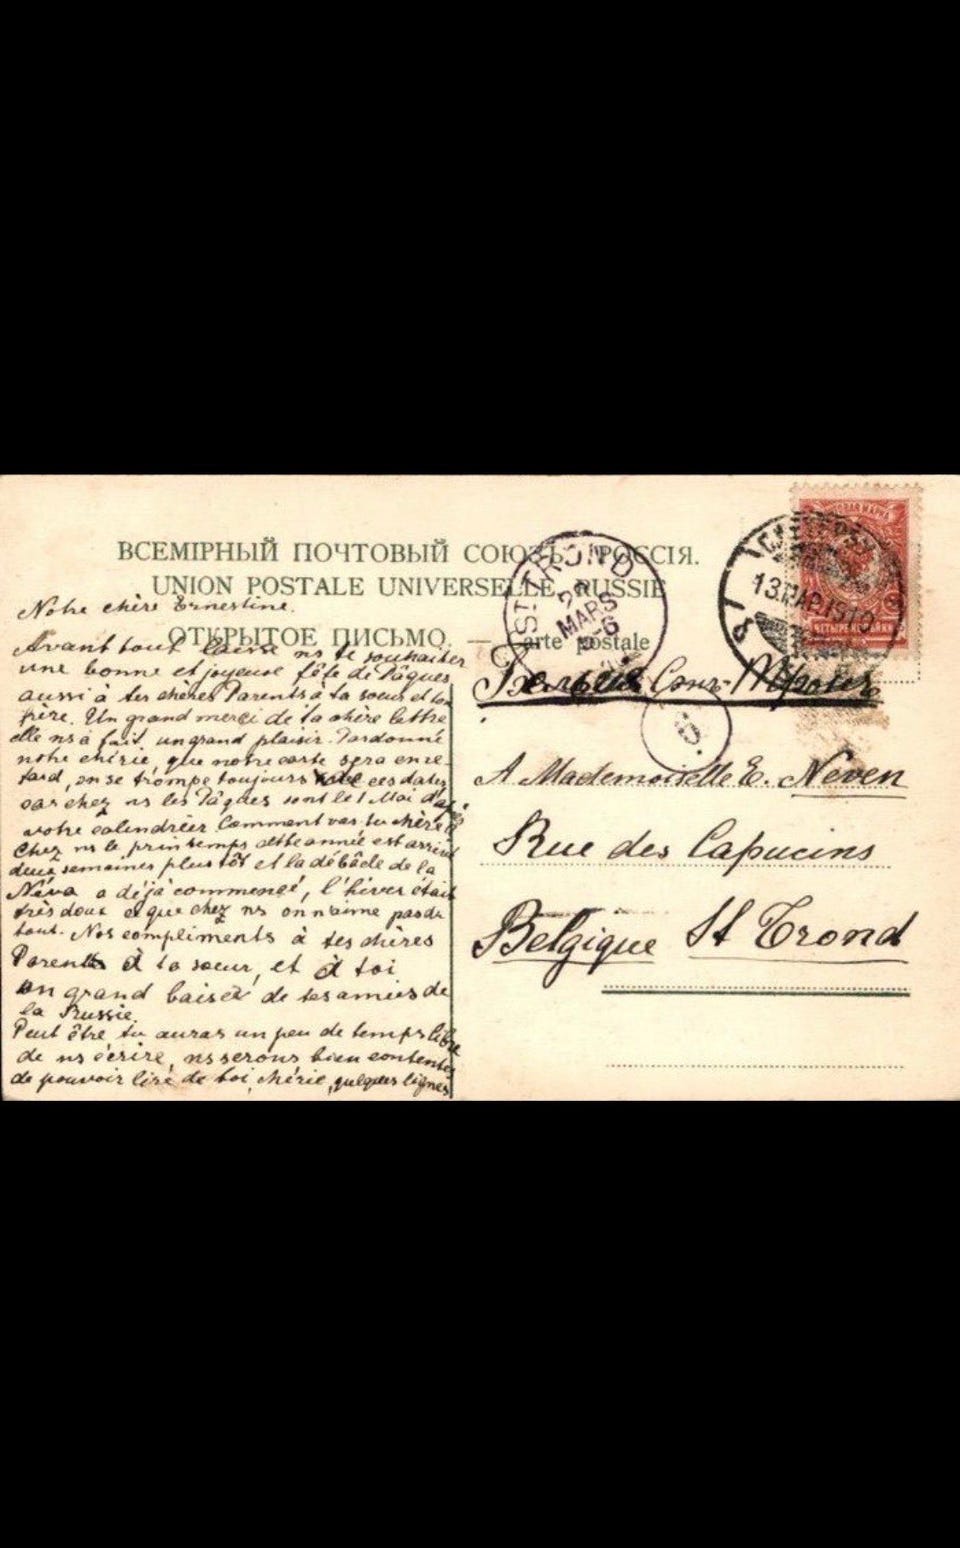 ВСЕМІРНЫЙ ПОЧТОВЫЙ СОЮЗЪ. РОССІЯ.
UNION POSTALE UNIVERSELLE. RUSSIE
ОТКРЫТОЕ ПИСЬМО. — Carte postale
Notre chère Ernestine.
Avant tout laisse ns te souhaiter
une bonne et joyeuse fête de Pâques
aussi à tes chères Parents à ta soeur et ton
frère. Un grand merci de ta chère lettre
elle ns à fait un grand plaisir. Pardonne
notre chérie, que notre carte sera en re-
tard, on se trompe toujours ces dates
car chez ns les Pâques sont le 1 Mai d'apr
votre calendrier Comment vas tu chère
Chez ns le printemps cette année est arrivé
deux semaines plus tôt et la débâcle de la
Néva a déjà commencé, l'hiver était
très doux ce que chez ns on n'aime pas du
tout. Nos compliments à tes chères
Parents à ta soeur, et à toi
un grand baiser de tes amies de
la Russie.
Peut être tu auras un peu de temps libre
de ns écrire, ns serons bien contentes
de pouvoir lire de toi, chérie, quelques lignes
ST TROND
MARS
ПЕТЕРБУРГ
13 МАР 1910
ПОЧТОВАЯ МАРКА
ЧЕТЫРЕ КОПѢЙКИ
Бельгія Сенъ-Тронъ
6.
A Mademoiselle E. Neven
Rue des Capucins
Belgique St Trond